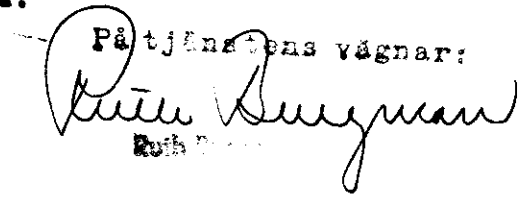 På tjänstens vägnar:
Ruth Bergman
Ruth